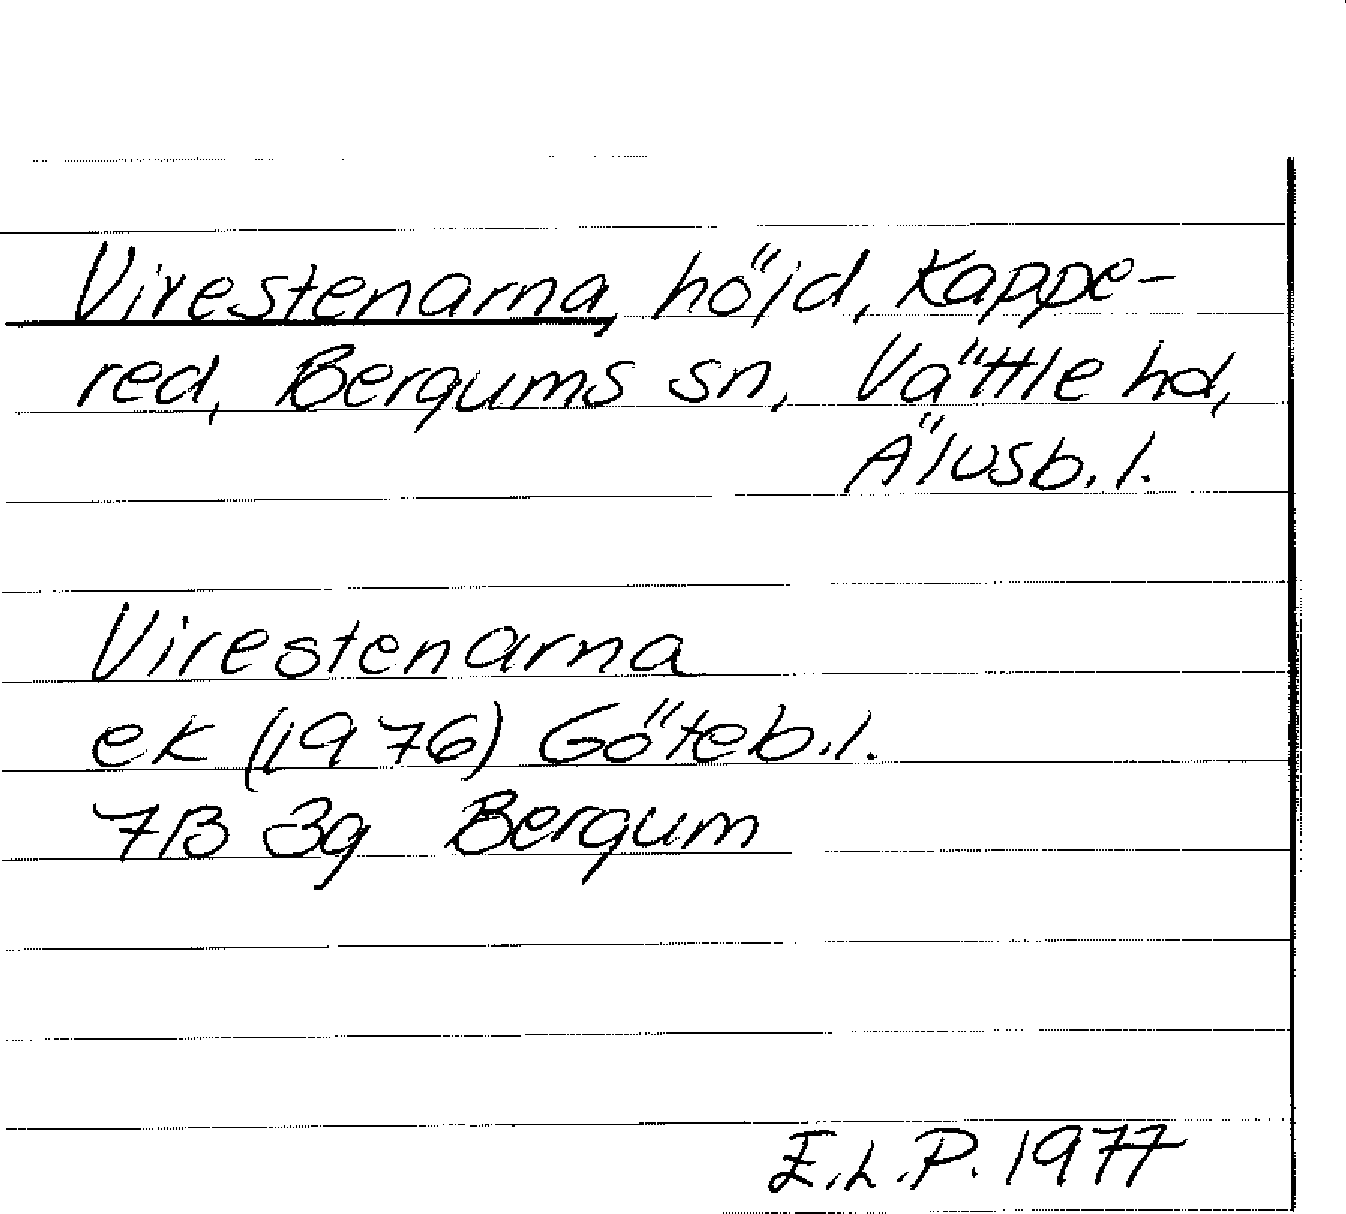 Virestenarna, höjd, Kappe-
red, Bergums sn, Vättle hd,
Älvsb. l.
Virestenarna
ek (1976) Göteb. l.
7B 3g Bergum
E.L.P. 1977